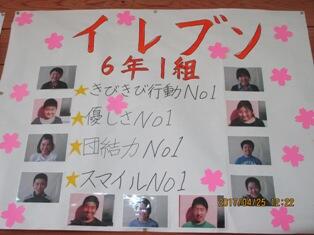 イレブン
6年1組
★きびきび行動No1
★優しさNo1
★団結力No1
★スマイルNo1
2017/04/25 12:22